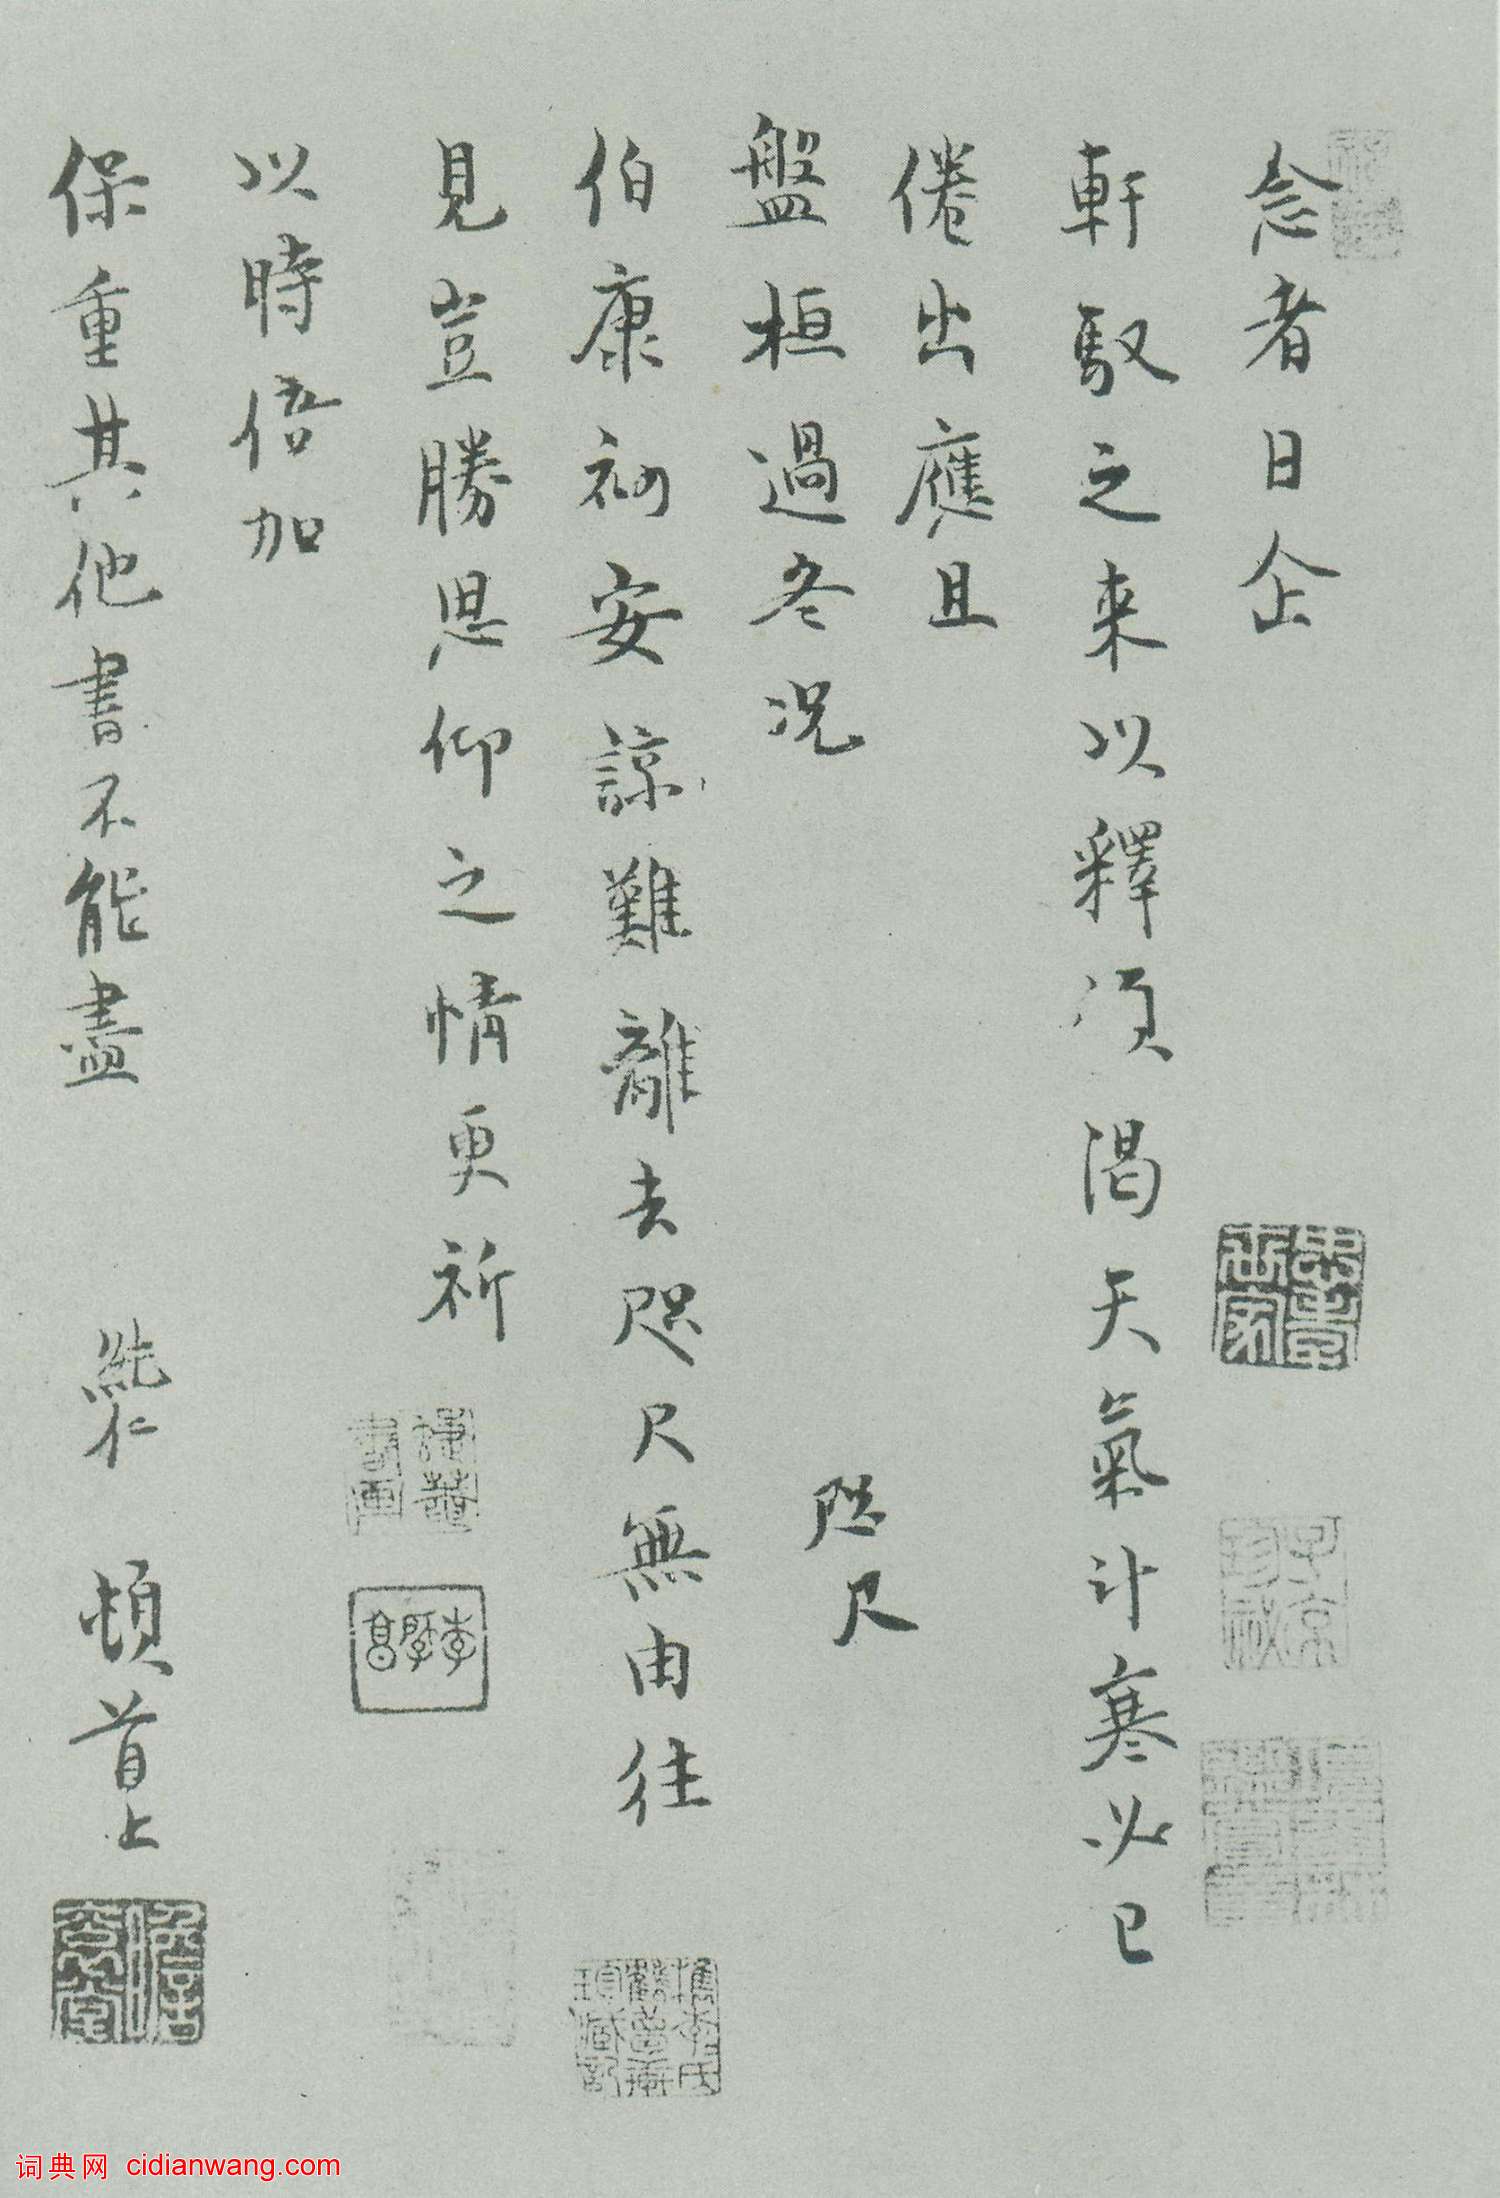 念者日企
軒馭之来以釋須渴天氣計寒必已
倦出應且
盤桓過冬況
咫尺
伯康初安諒難離去咫尺無由往
見豈勝思仰之情更祈
以時倍加
保重其他書不能盡
頓首上
子京珍秘
李肇亨
檇李項氏
词典网 cidianwang.com